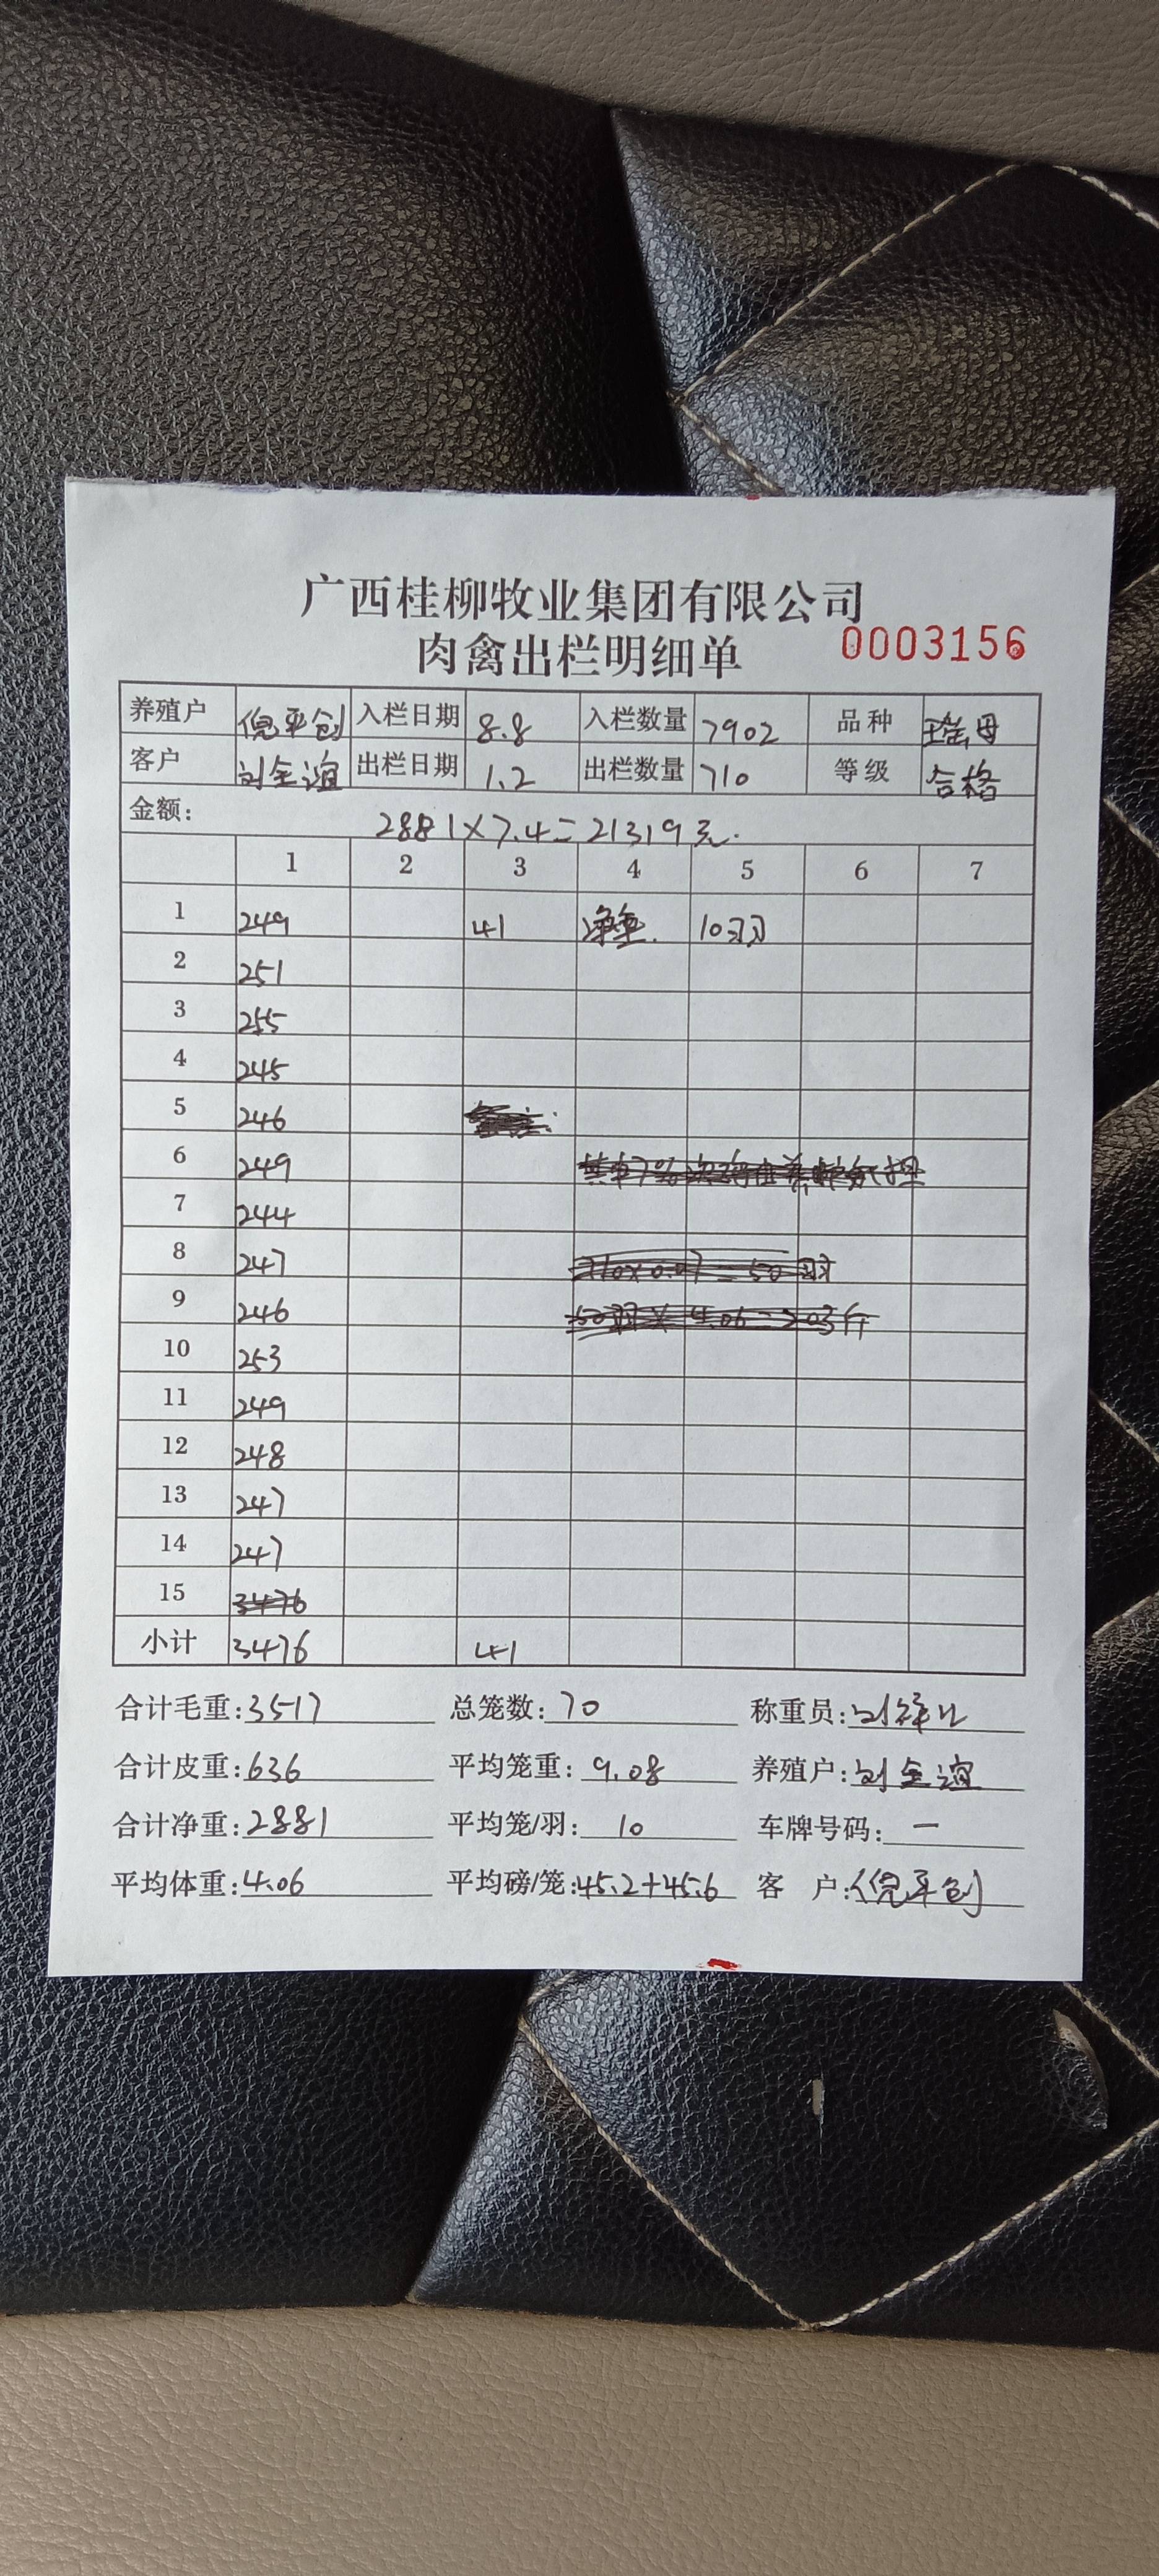 广西桂柳牧业集团有限公司
肉禽出栏明细单 0003156
养殖户 倪平创 入栏日期 8.8 入栏数量 7902 品种 瑶母
客户 刘全谊 出栏日期 1.2 出栏数量 710 等级 合格
金额: 2881×7.4=21319元.
1 2 3 4 5 6 7
1 249 41 净重. 10羽
2 251
3 255
4 245
5 246
6 249
7 244
8 247 710×0.07=50羽
9 246 50羽×4.06=203斤
10 253
11 249
12 248
13 247
14 247
15 3476
小计 3476 41
合计毛重:3517 总笼数:70 称重员:刘
合计皮重:636 平均笼重:9.08 养殖户:刘全谊
合计净重:2881 平均笼/羽:10 车牌号码:一
平均体重:4.06 平均磅/笼:45.2+45.6 客 户:倪平创